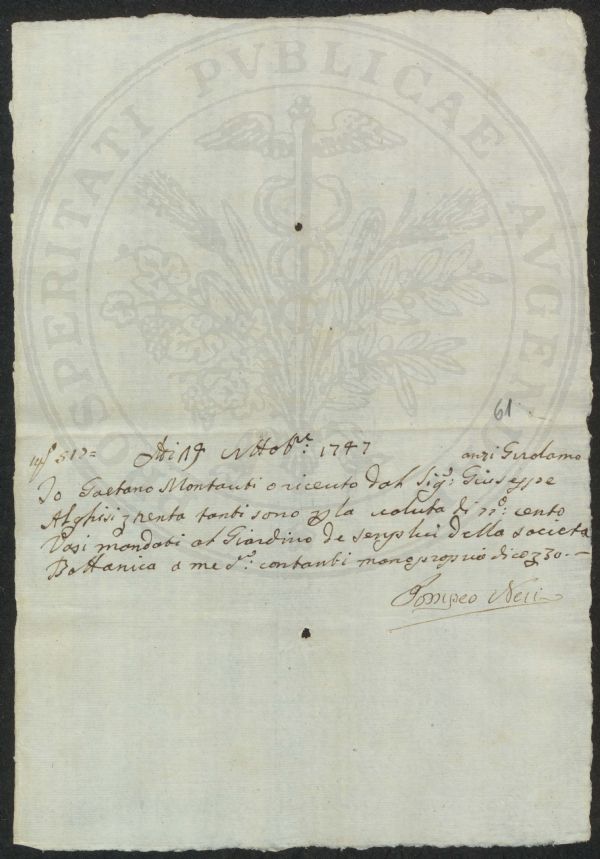 PROSPERITATI PVBLICAE AVGENDAE
61.
Adi 19 Ottobre: 1747
anzi Girolamo
Io Gaetano Montauti o riceuto dal Sigr: Giuseppe
Alghisi trenta tanti sono p la valuta di nº: cento
Vasi mandati al Giardino de senplici della societa
Bottanica a me contanti mano propria dico 30.—
Pompeo Neri